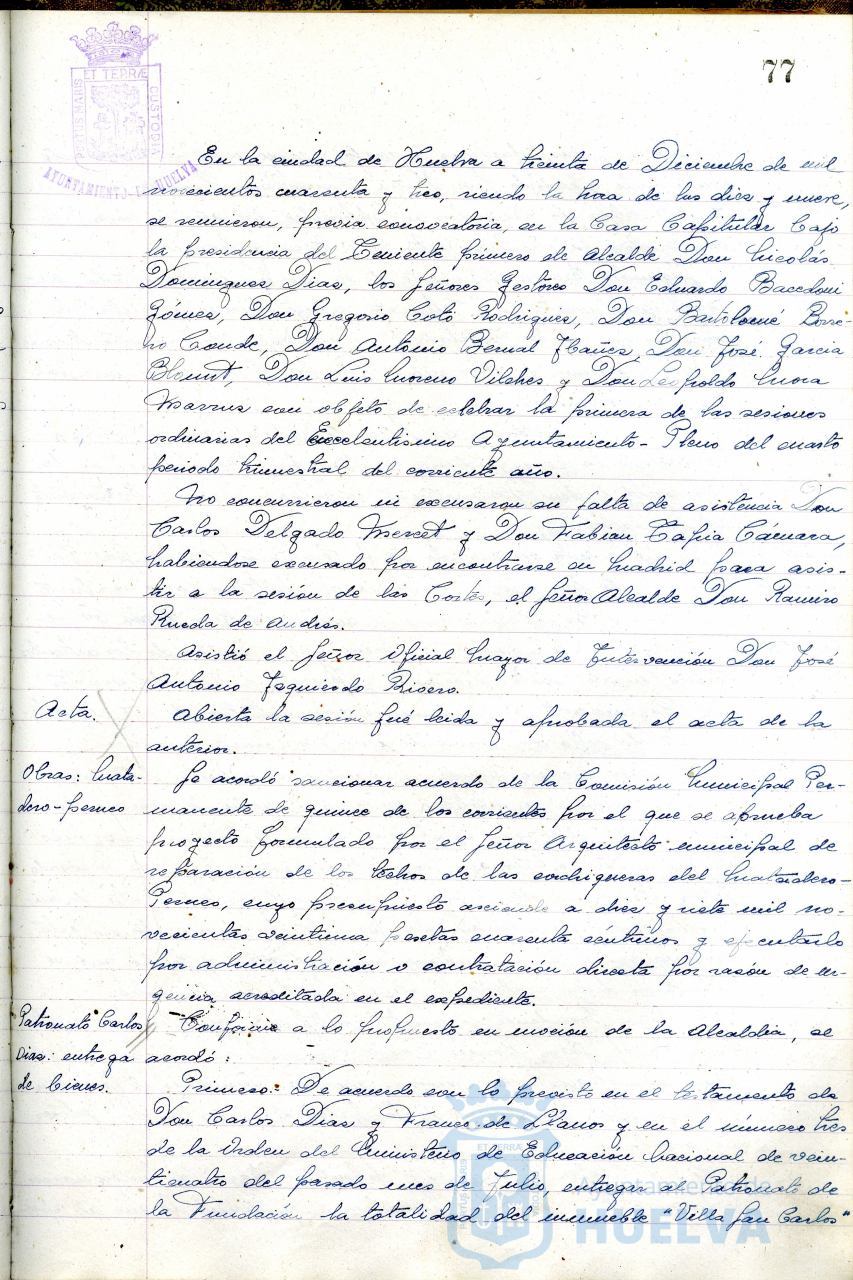 77
PORTUS MARIS ET TERRÆ CUSTODIA
AYUNTAMIENTO DE HUELVA
En la ciudad de Huelva a treinta de Diciembre de mil
novecientos cuarenta y tres, siendo la hora de las diez y nueve,
se reunieron, previa convocatoria, en la Casa Capitular bajo
la presidencia del Teniente primero de Alcalde Don Nicolás
Dominguez Diaz, los Señores Gestores Don Eduardo Bacedoni
Gómez, Don Gregorio Coto Rodriguez, Don Bartolomé Borre-
ro Conde, Don Antonio Bernal Ibañez, Don José Garcia
Blount, Don Luis Moreno Vilches y Don Leopoldo Mora
con objeto de celebrar la primera de las sesiones
ordinarias del Excelentísimo Ayuntamiento-Pleno del cuarto
periodo trimestral del corriente año.
No concurrieron ni excusaron su falta de asistencia Don
Carlos Delgado Mercet y Don Fabian Tapia Cámara,
habiendose excusado por encontrarse en Madrid para asis-
tir a la sesión de las Cortes, el Señor Alcalde Don Ramiro
Rueda de Andrés.
Asistió el Señor Oficial Mayor de Intervención Don José
Antonio Izquierdo Rivero.
Acta.
Abierta la sesión fué leida y aprobada el acta de la
anterior.
Obras: Mata-
dero-porcino
Se acordó sancionar acuerdo de la Comisión Municipal Per-
manente de quince de los corrientes por el que se aprueba
proyecto formulado por el Señor Arquitecto municipal de
reparación de los techos de las cochiqueras del Matadero-
cuyo presupuesto asciende a diez y siete mil no-
vecientas veintiuna pesetas cuarenta céntimos y ejecutarlo
por administración o contratación directa por razón de ur-
gencia acreditada en el expediente.
Patronato Carlos
Diaz: entrega
de bienes.
Conforme a lo propuesto en moción de la Alcaldía, se
acordó:
Primero.- De acuerdo con lo previsto en el testamento de
Don Carlos Diaz y Franco de Llanos y en el número tres
de la Orden del Ministerio de Educación Nacional de vein-
ticuatro del pasado mes de Julio, entregar al Patronato de
la Fundación la totalidad del inmueble "Villa San Carlos"
Ayuntamiento de
HUELVA